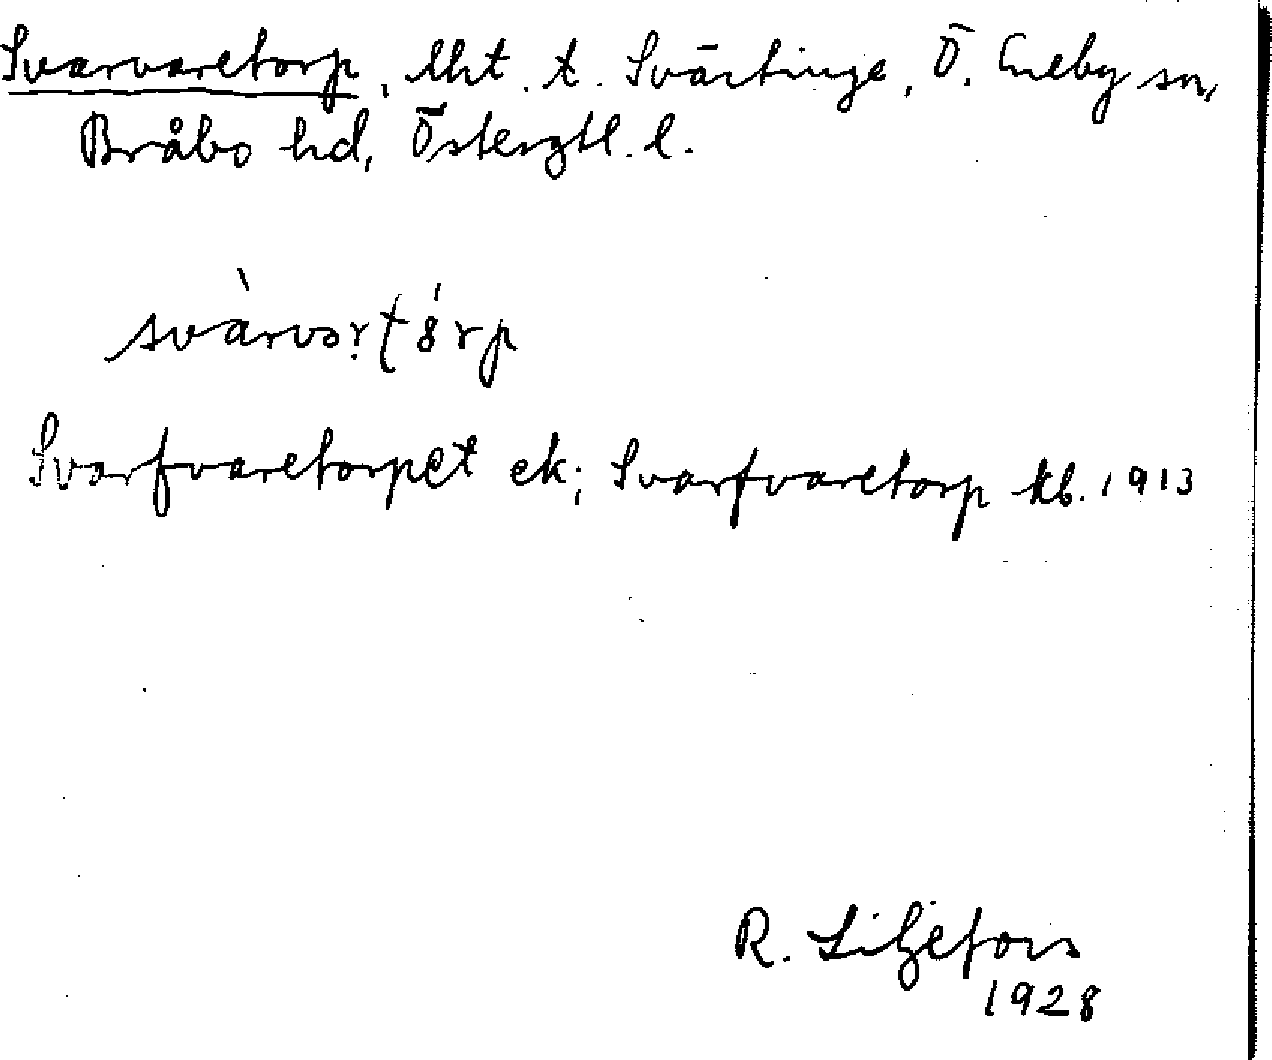 Svarvaretorp, lht. t. Svärtinge, Ö. Eneby sn,
Bråbo hd, Östergtl. l.
svàrvortórp
Svarfvaretorpet ek; Svarfvaretorp kb. 1913
R. Liljefors
1928